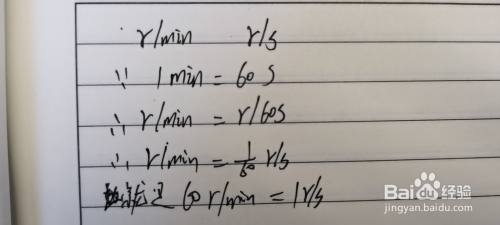 r/min r/s
∵ 1 min = 60 S
∴ r/min = r/60s
∴ r/min = 1/60 r/s
就是 60 r/min = 1r/s
Baidu 经验
jingyan.baidu.com